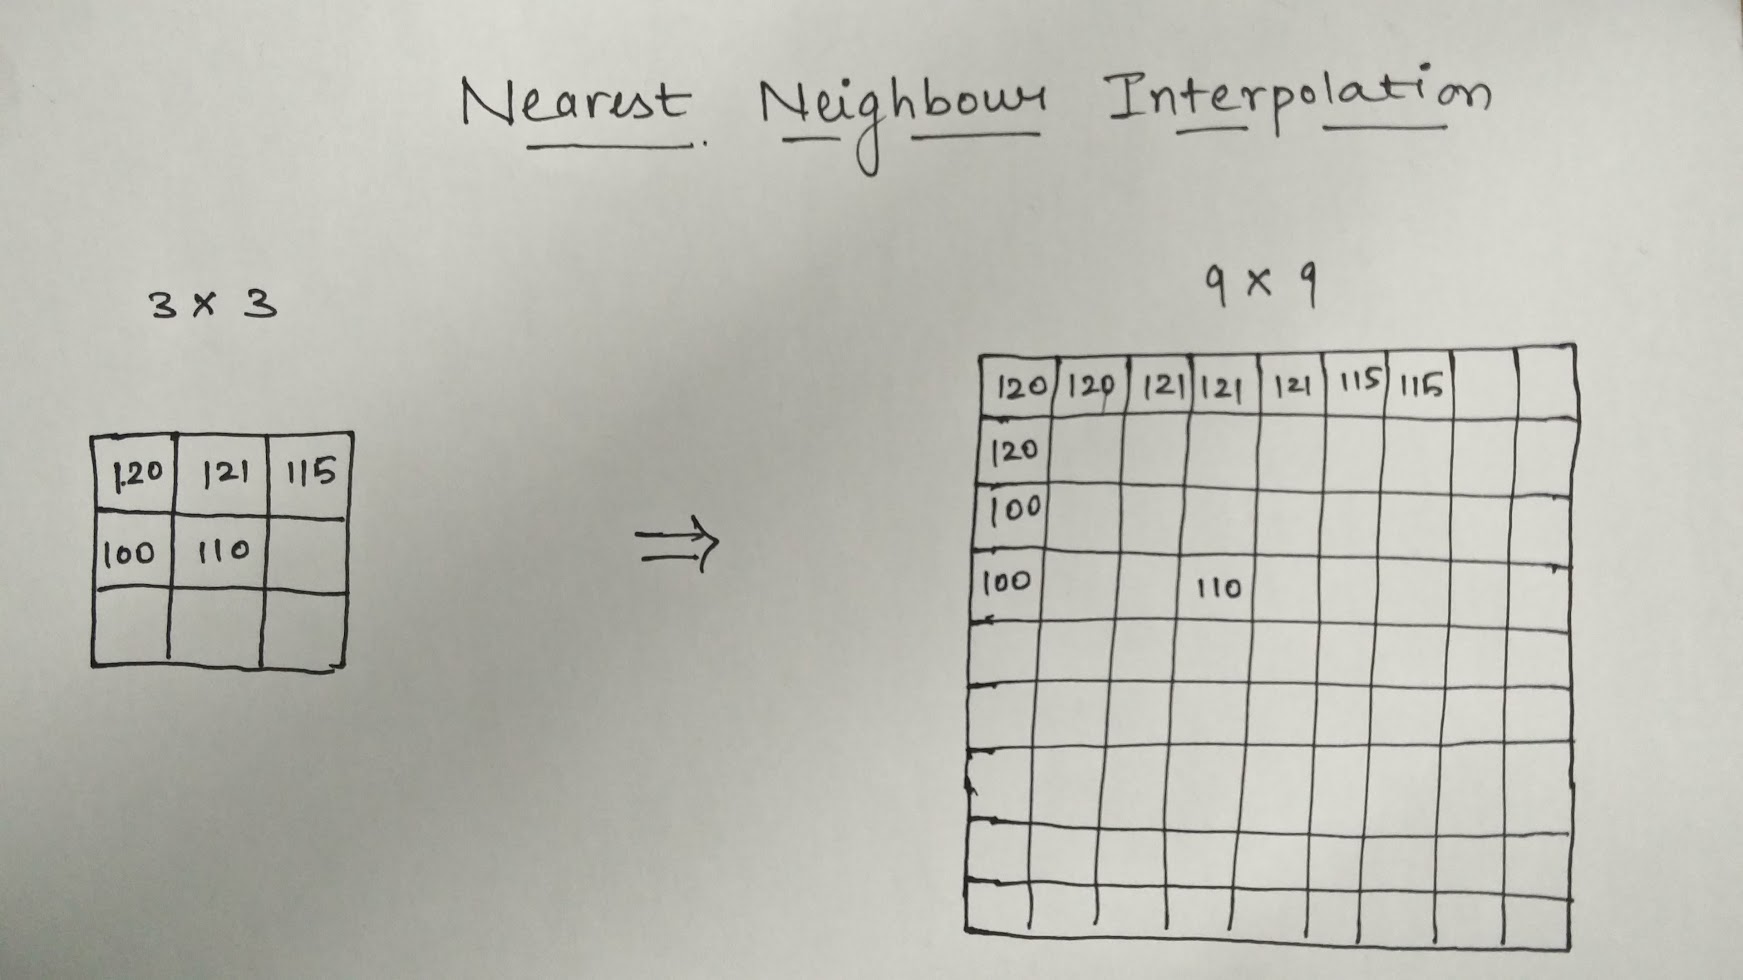 Nearest Neighbour Interpolation
3 x 3
9 x 9
120 121 115
100 110
120 120 121 121 121 115 115
120
100
100 110